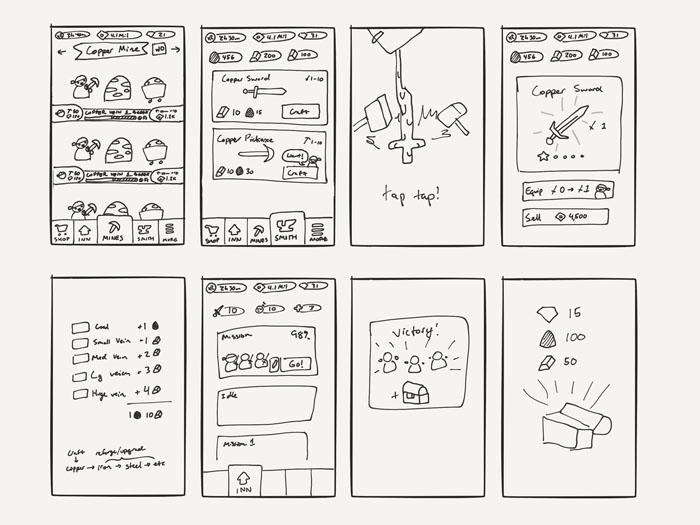 2h 30m 4.1 Mil 21
← Copper Mine →
COPPER VEIN
1.2k
COPPER VEIN
1.2k
SHOP INN MINES SMITH MORE
2h 30m 4.1 Mil 31
456 200 100
Copper Sword 1-10
10 15 Craft
Copper Pickaxe 1-10
10 30 Craft
SHOP INN MINES SMITH MORE
tap tap!
2h 30m 4.1 Mil 31
456 200 100
Copper Sword
1
Equip 0 → 1
Sell 4,500
Coal +1
Small Vein -1
Med Vein +2
Lg veien +3
Huge vein +4
1 10
Craft refuge/upgrad
copper → iron → steel → etc
2h 30m 4.1 Mil 31
70 10 7
Mission 98%
Go!
Idle
Mission 1
INN
Victory!
+
15
100
50